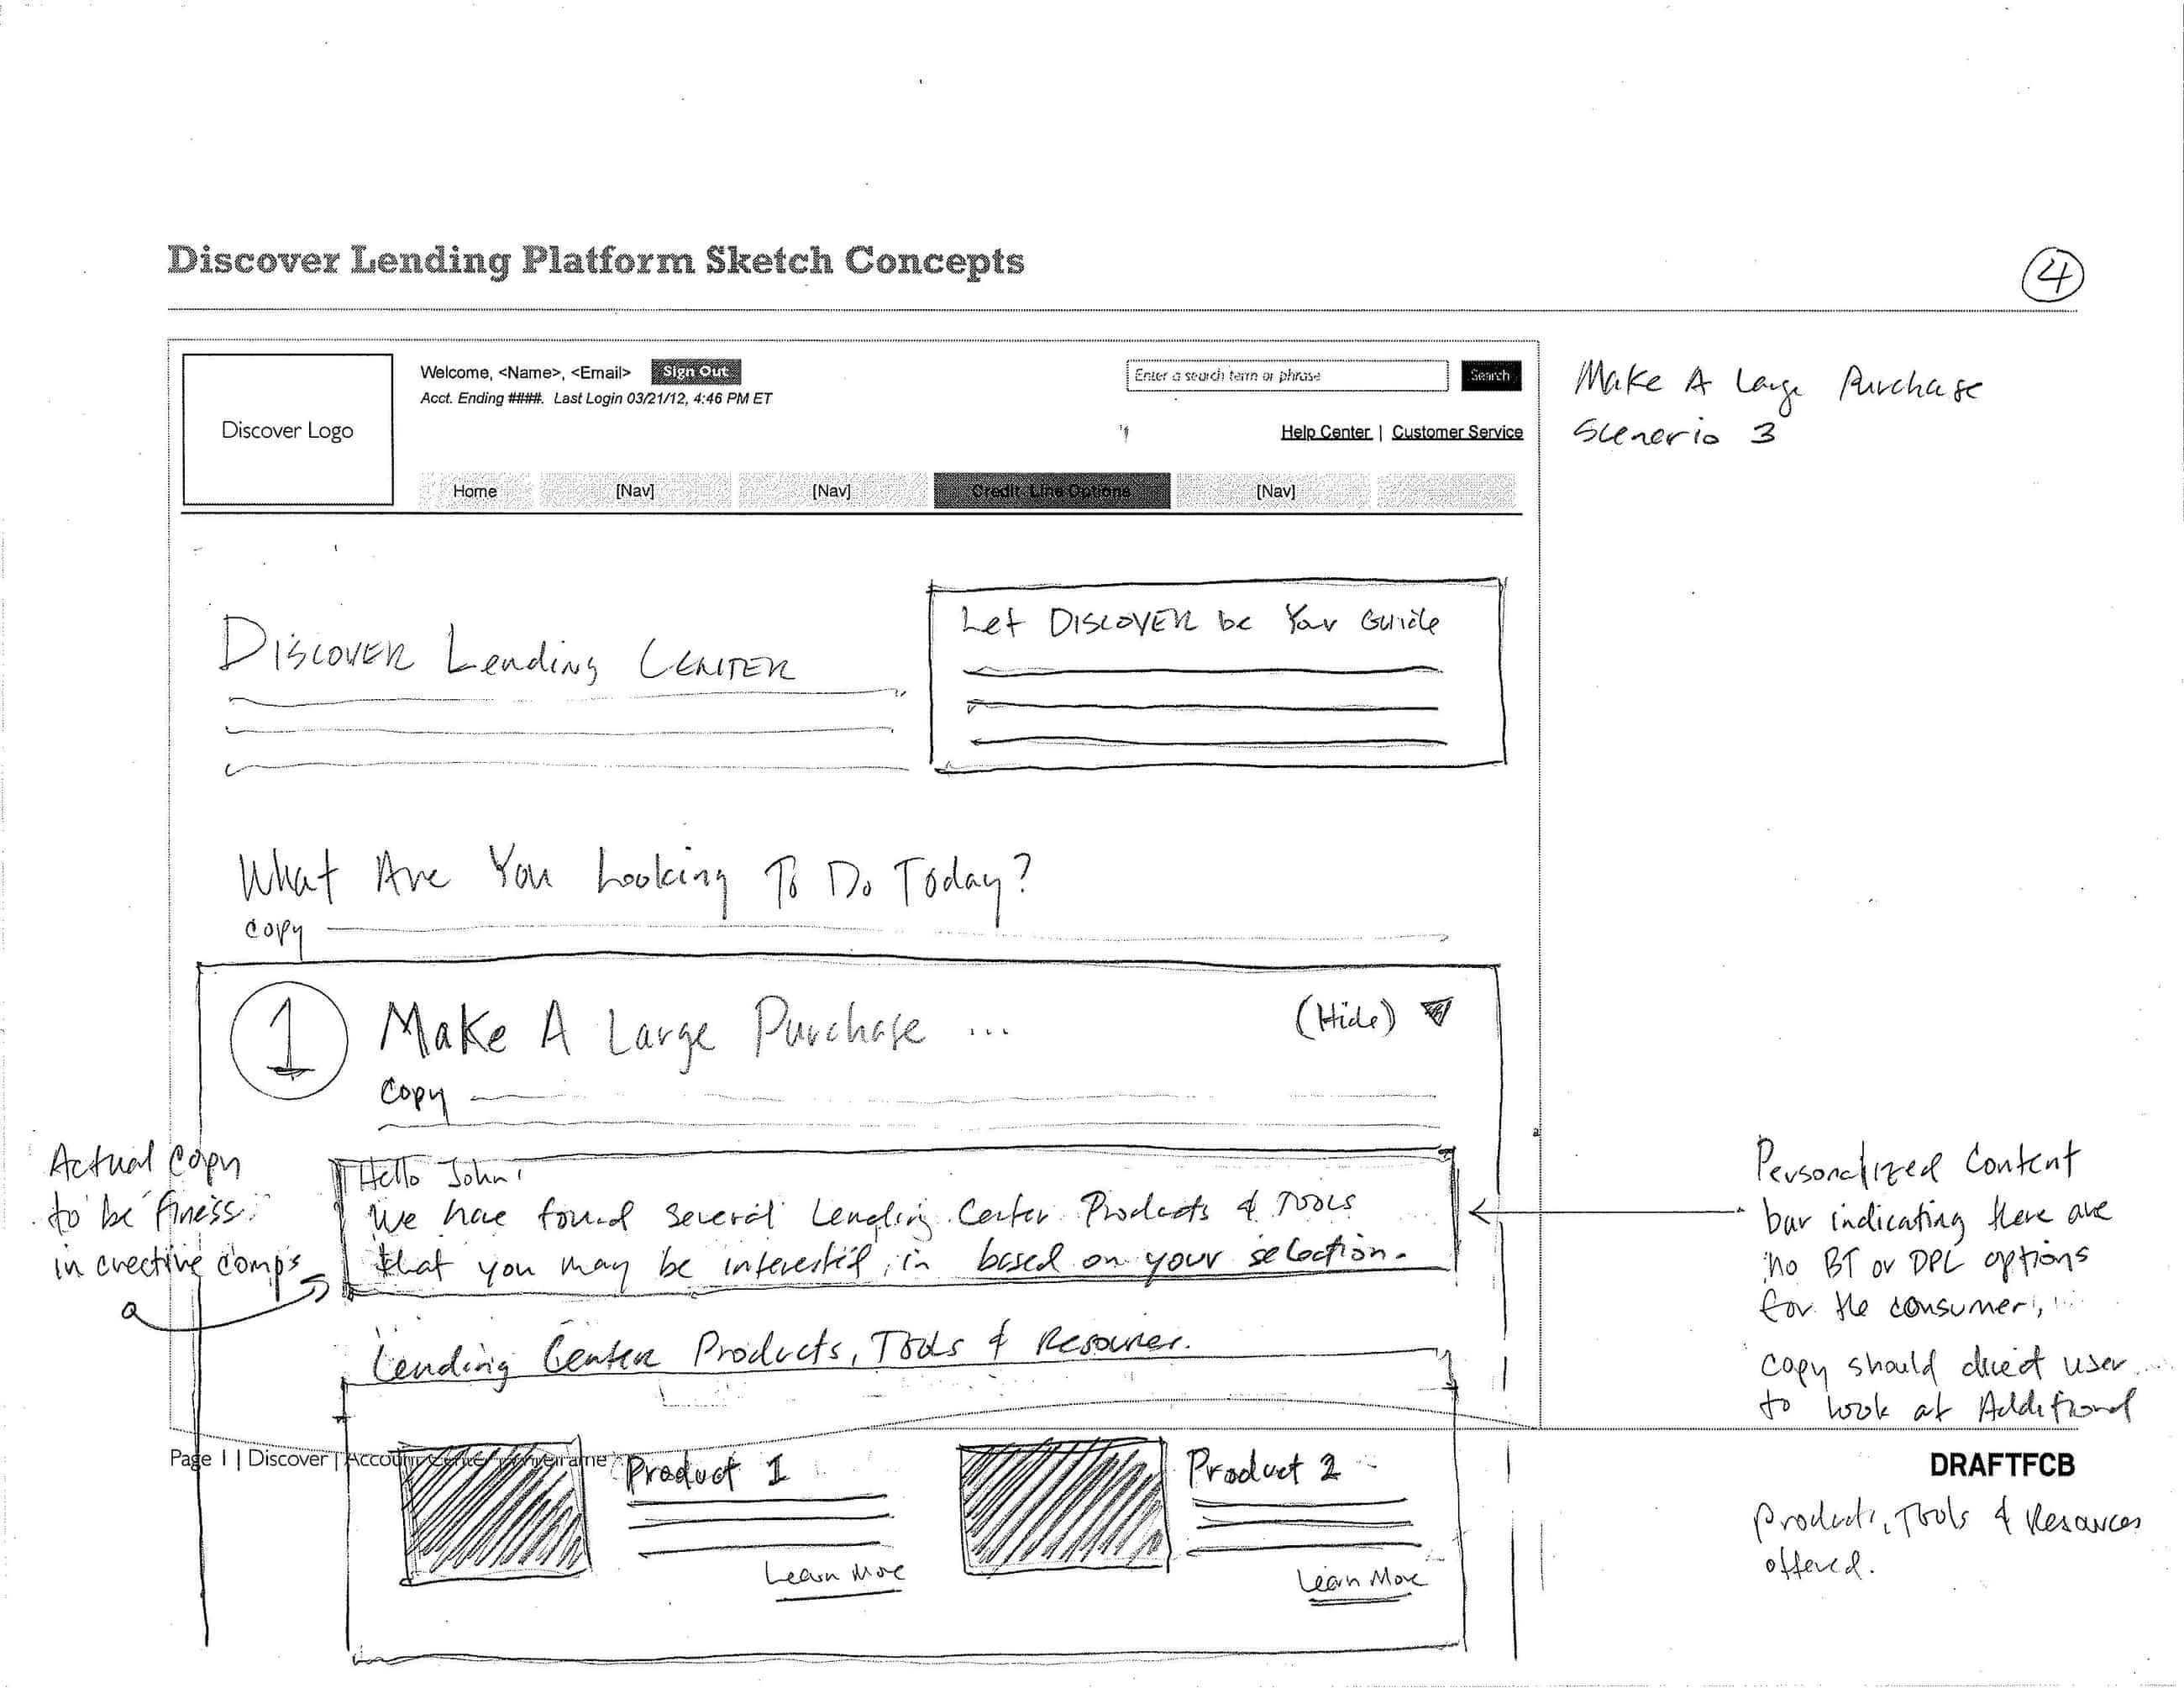 Discover Lending Platform Sketch Concepts
4
Discover Logo
Welcome, <Name>, <Email> Sign Out
Acct. Ending ####. Last Login 03/21/12, 4:46 PM ET
Enter a search term or phrase Search
Help Center | Customer Service
Home [Nav] [Nav] Credit Line Options [Nav]
Make A Large Purchase
Scenerio 3
DISCOVER Lending CENTER
Let DISCOVER be Your Guide
What Are You Looking To Do Today?
Copy
1 Make A Large Purchase ... (Hide)
Copy
Actual Copy
to be finess
in creative comps
Hello John!
We have found several Lending Center Products & Tools
that you may be interested in based on your selection.
Personalized Content
bar indicating there are
no BT or DPL options
for the consumer,
copy should direct user
to look at Additional
Products, Tools & Resources
offered.
Lending Center Products, Tools & Resources.
Product 1
Learn More
Product 2
Learn More
Page 1 | Discover | Account Center Wireframe
DRAFTFCB